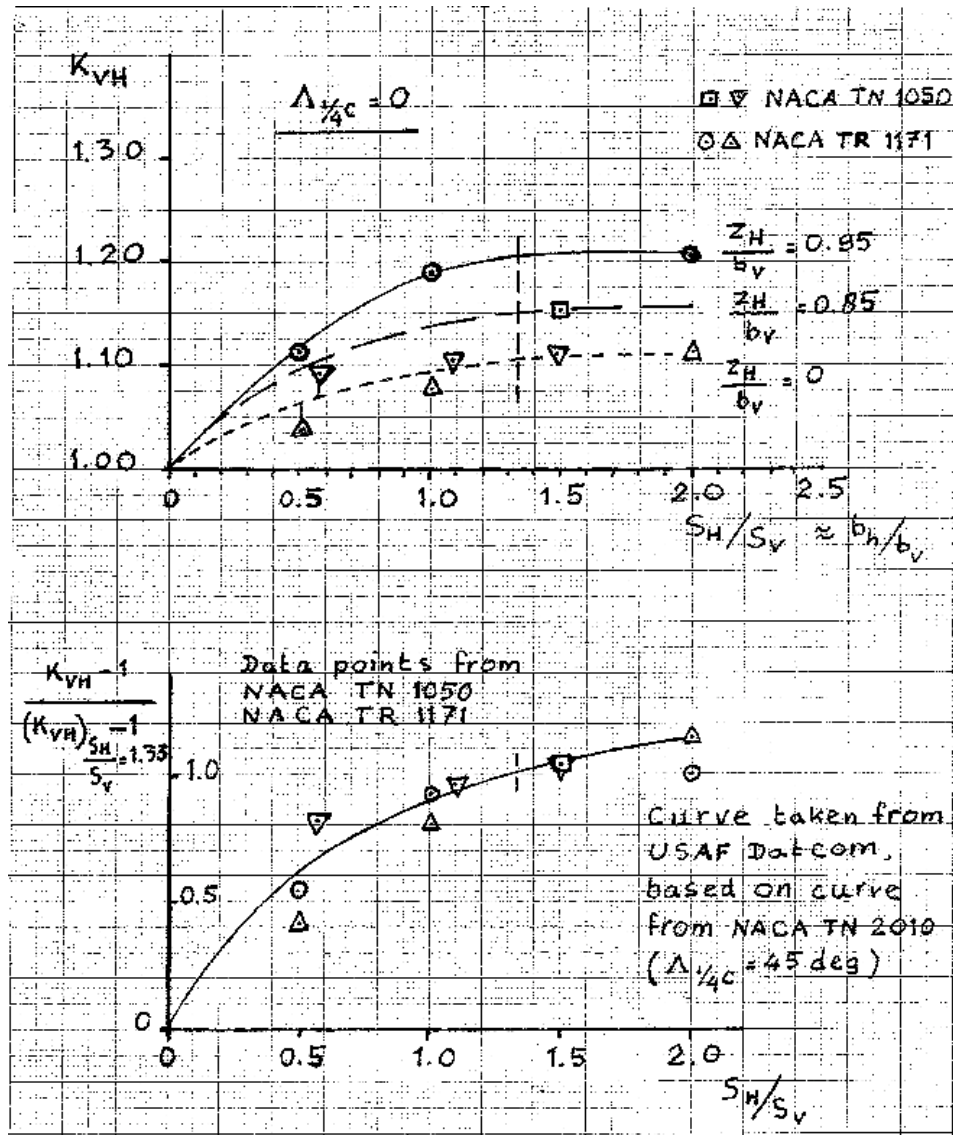 K_VH
Λ_¼c = 0
⊡ ▽ NACA TN 1050
⊙ △ NACA TR 1171
1.30
1.20
1.10
1.00
z_H/b_v = 0.95
z_H/b_v = 0.85
z_H/b_v = 0
0 0.5 1.0 1.5 2.0 2.5
S_H/S_V ≈ b_h/b_v
K_VH -1
(K_VH)_S_H/S_V=1.33 -1
Data points from
NACA TN 1050
NACA TR 1171
1.0
0.5
0
Curve taken from
USAF Datcom,
based on curve
from NACA TN 2010
(Λ_¼c = 45 deg)
0 0.5 1.0 1.5 2.0
S_H/S_V